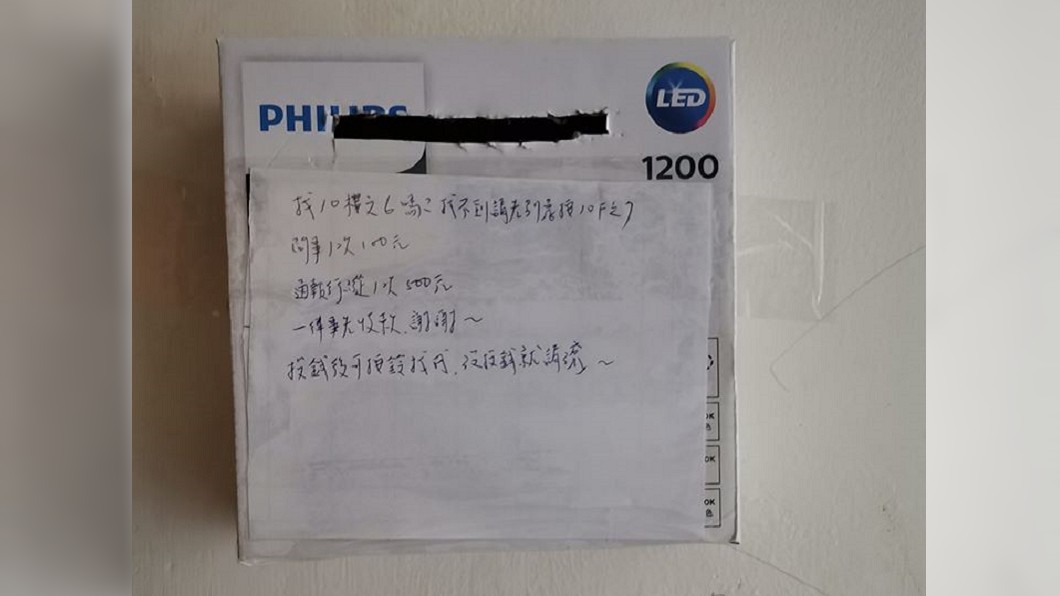 PHILIPS
LED
1200
找10樓之6嗎?找不到請先別急按10F之7
問事1次100元
通報行蹤1次500元
一律事先收款.謝謝~
投錢後可按鈴找我.沒投錢就請滾~
OK
OK
OK
色